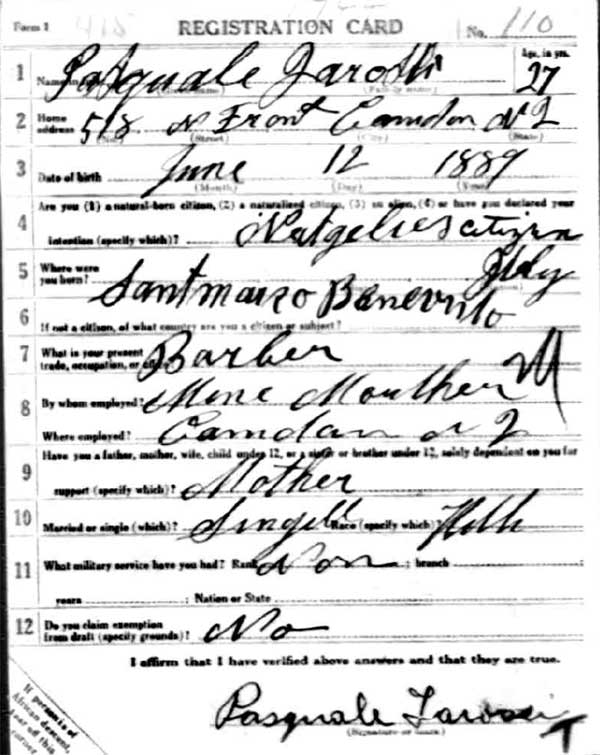 Form 1 415 REGISTRATION CARD No. 110
1 Name in full Pasquale Jarossi Age, in yrs. 27
(Given name) (Family name)
2 Home address 518 N Front Camdon N J
(No.) (Street) (City) (State)
3 Date of birth June 12 1889
(Month) (Day) (Year)
4 Are you (1) a natural-born citizen, (2) a naturalized citizen, (3) an alien, (4) or have you declared your
intention (specify which)? citizen
5 Where were you born? Santmarco Benevnto Itly
6 If not a citizen, of what country are you a citizen or subject?
7 What is your present trade, occupation, or office? Barber
8 By whom employed? Mine Moulther
Where employed? Camdan N J
9 Have you a father, mother, wife, child under 12, or a sister or brother under 12, solely dependent on you for
support (specify which)? Mother
10 Married or single (which)? Singell Race (specify which)?
11 What military service have you had? Rank Non ; branch
years ; Nation or State
12 Do you claim exemption from draft (specify grounds)? No
I affirm that I have verified above answers and that they are true.
Pasquale Iarossi
(Signature or mark)
If person is of African descent, tear off this corner